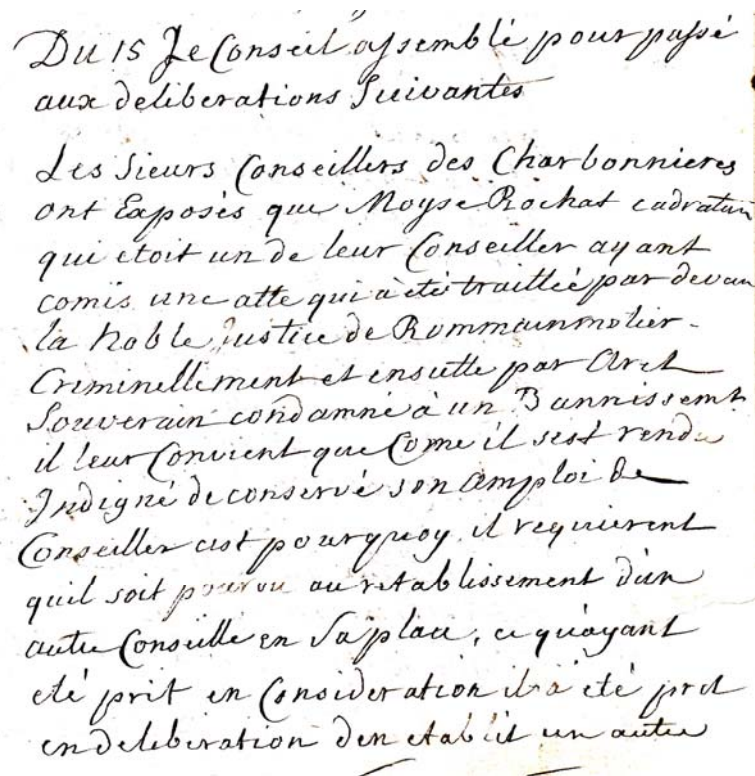 Du 15 Le Conseil assemblé pour passé
aux deliberations Suivantes
Les Sieurs Conseillers des Charbonnieres
ont Exposés que Moyse Rochat cadratur
qui etoit un de leur Conseiller ayant
comis une atte qui à été traittée par devan
la Noble Justice de Rommainmotier
Criminellement et ensuitte par Aret
Souverain condamné à un Bannissemt
il leur Convient que Come il sest rendu
Indigné de conservé son Amploi de
Conseiller cest pourquoy il requierent
quil soit pourvu au retablissement dún
autre Conseille en Sa place, ce quáyant
eté prit en Consideration il à eté prit
en deliberation den etablit un autre